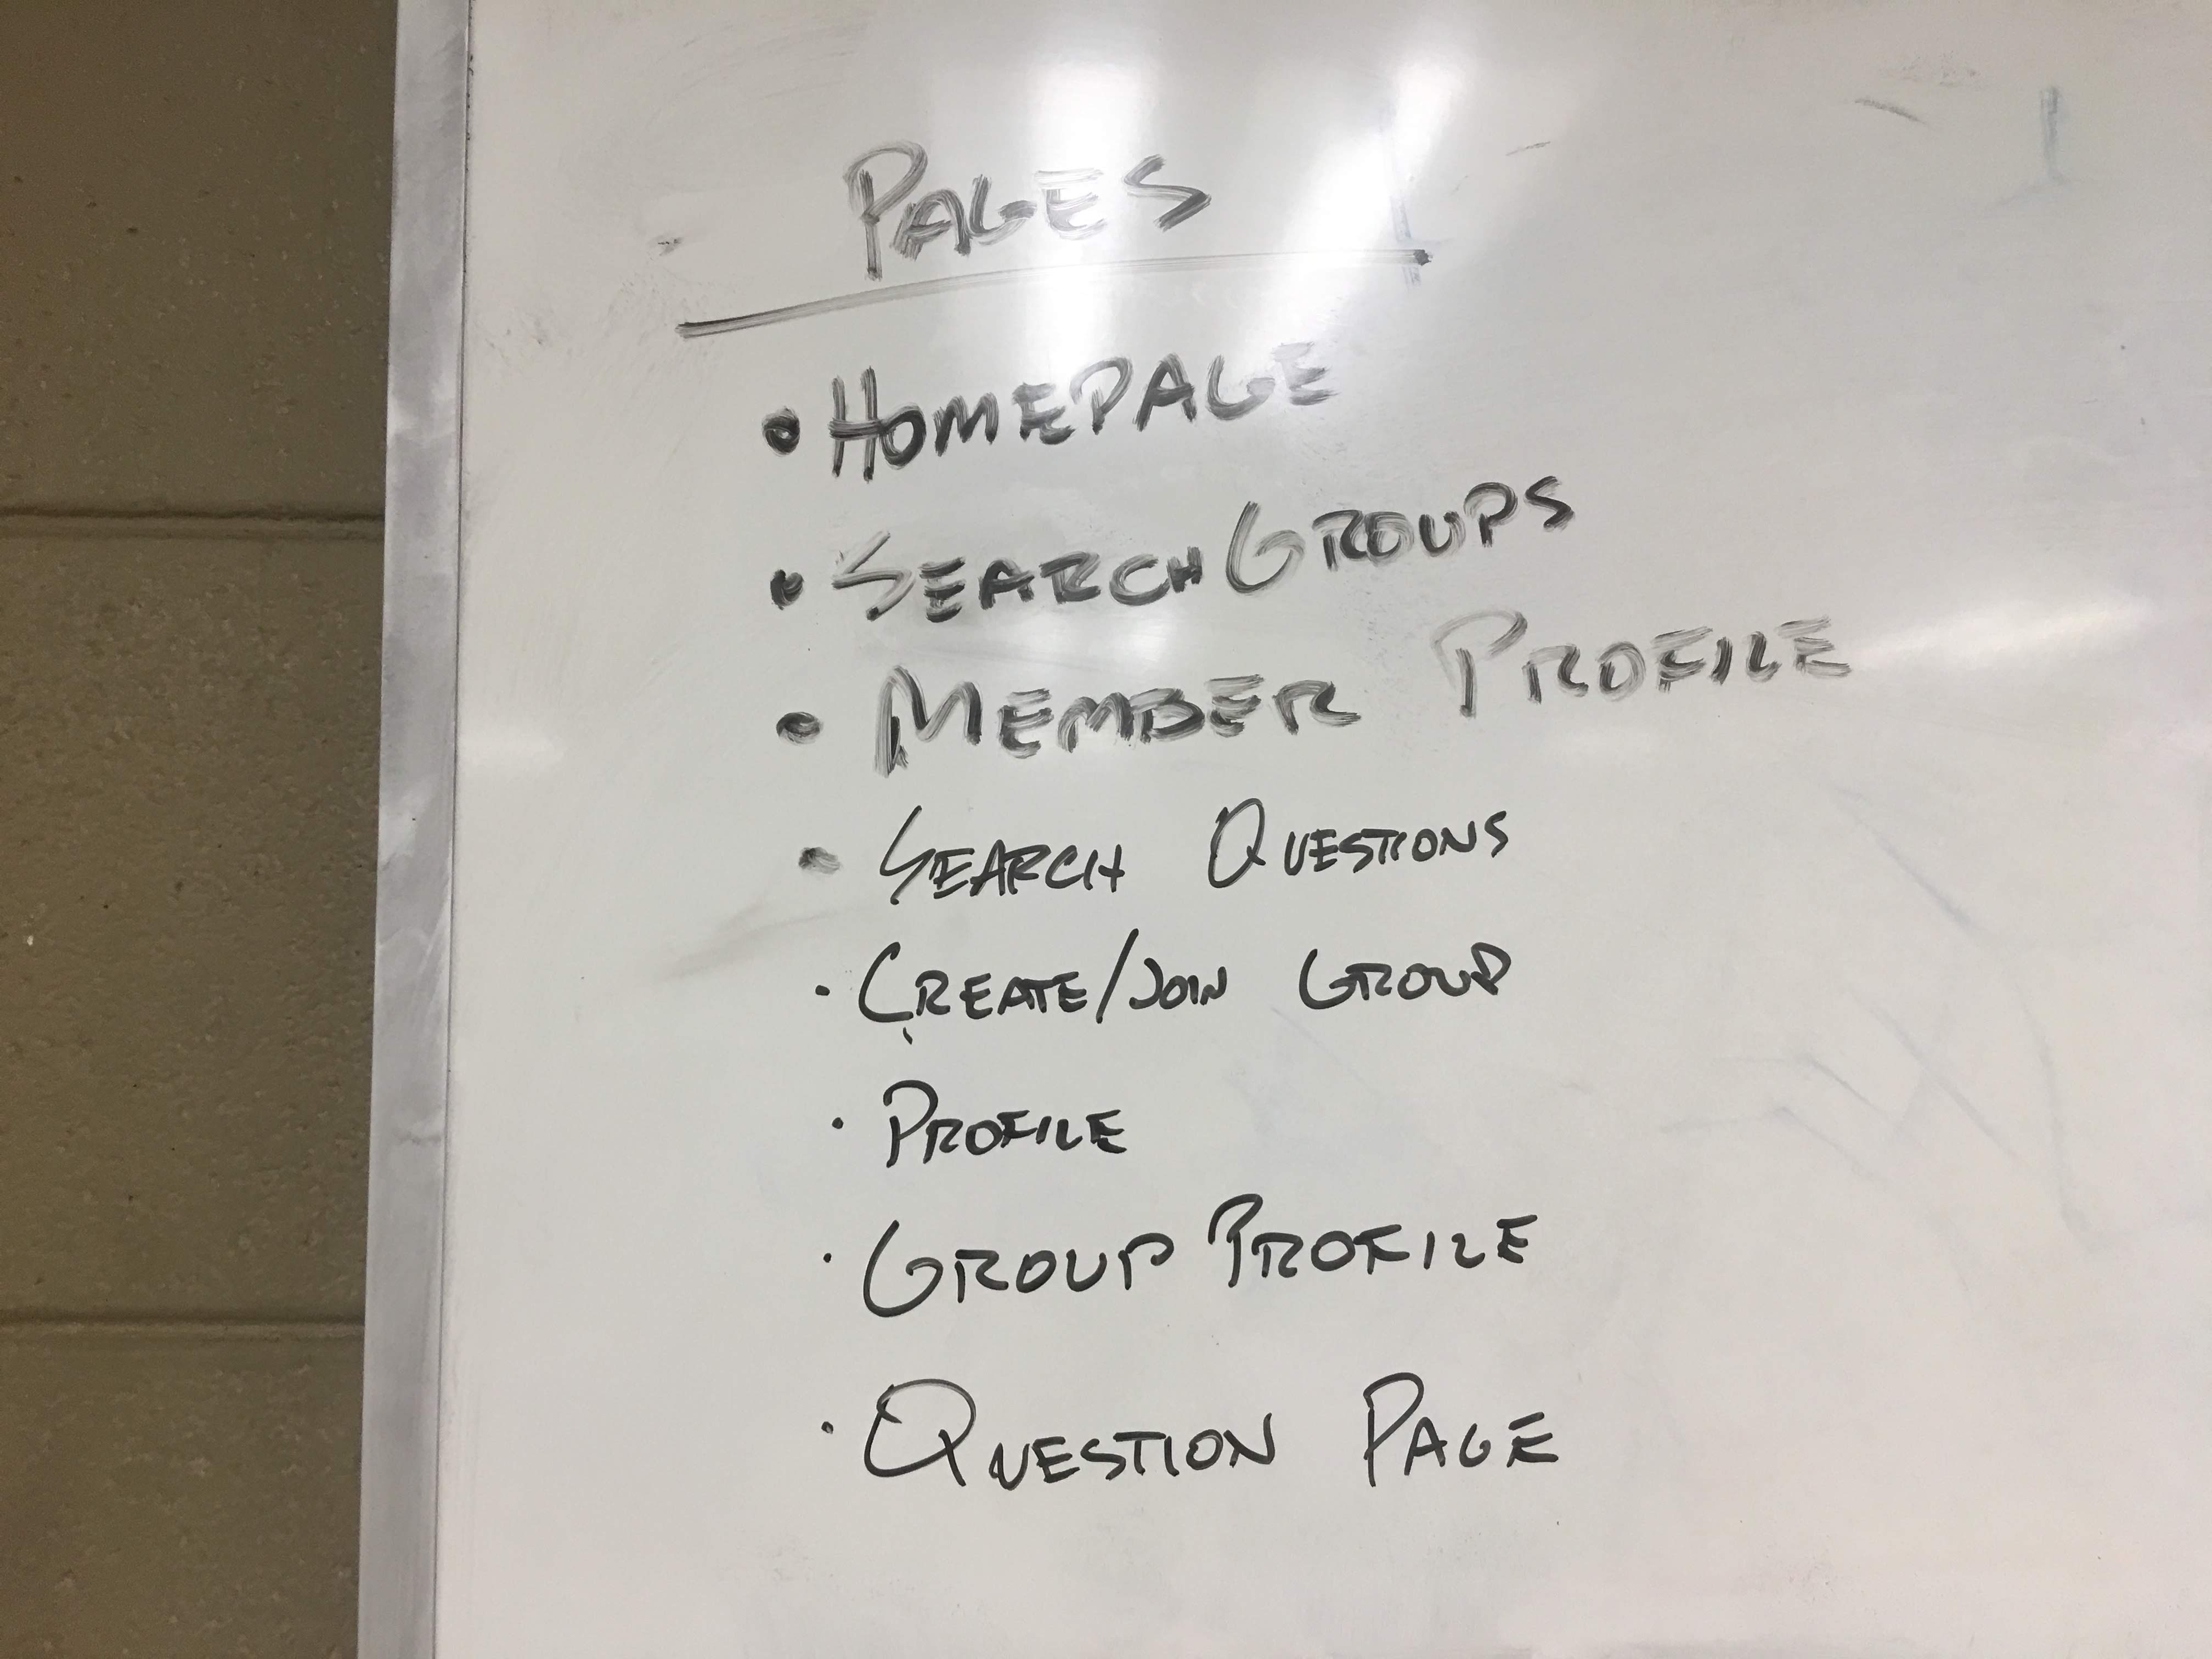 PAGES
• HOMEPAGE
• SEARCH GROUPS
• MEMBER PROFILE
• SEARCH QUESTIONS
• CREATE/JOIN GROUP
• PROFILE
• GROUP PROFILE
• QUESTION PAGE